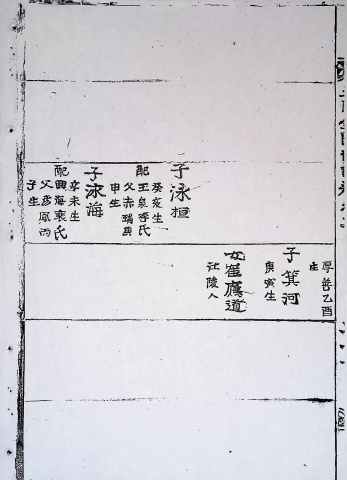 子泳
癸亥生
配玉泉李氏
父赤瑞庚
申生
子泳海
辛未生
配興海裵氏
父彦鳳丙
子生
厚善乙酉
生
子箕河
庚寅生
女崔鷹道
江陵人